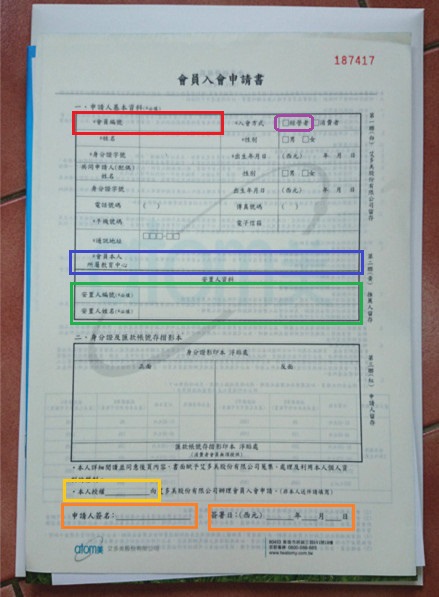 187417
會員入會申請書
一、申請人基本資料(*必填)
*會員編號 *入會方式 □經營者 □消費者
*姓名 *性別 □男 □女
*身分證字號 *出生年月日 (西元) 年 月 日
共同申請人(配偶)姓名 性別 □男 □女
身分證字號 出生年月日 (西元) 年 月 日
電話號碼 ( ) 傳真號碼 ( )
*手機號碼 電子信箱
*通訊地址 □□□-□□
*會員本人
所屬教育中心
安置人資料
安置人編號(*必填)
安置人姓名(*必填)
二、身分證及匯款帳號存摺影本
身分證影印本 浮貼處
正面 反面
匯款帳號存摺影印本 浮貼處
(消費者會員無須檢附)
・本人詳細閱讀並同意後頁內容,書面賦予艾多美股份有限公司蒐集、處理及利用本人個人資
・本人授權________向艾多美股份有限公司辦理會員入會申請。(非本人送件請填寫)
申請人簽名:______________ 簽署日:(西元)______年____月____日
atom美 艾多美股份有限公司
第一聯(白) 艾多美股份有限公司留存
第二聯(黃) 推薦人留存
第三聯(紅) 申請人留存